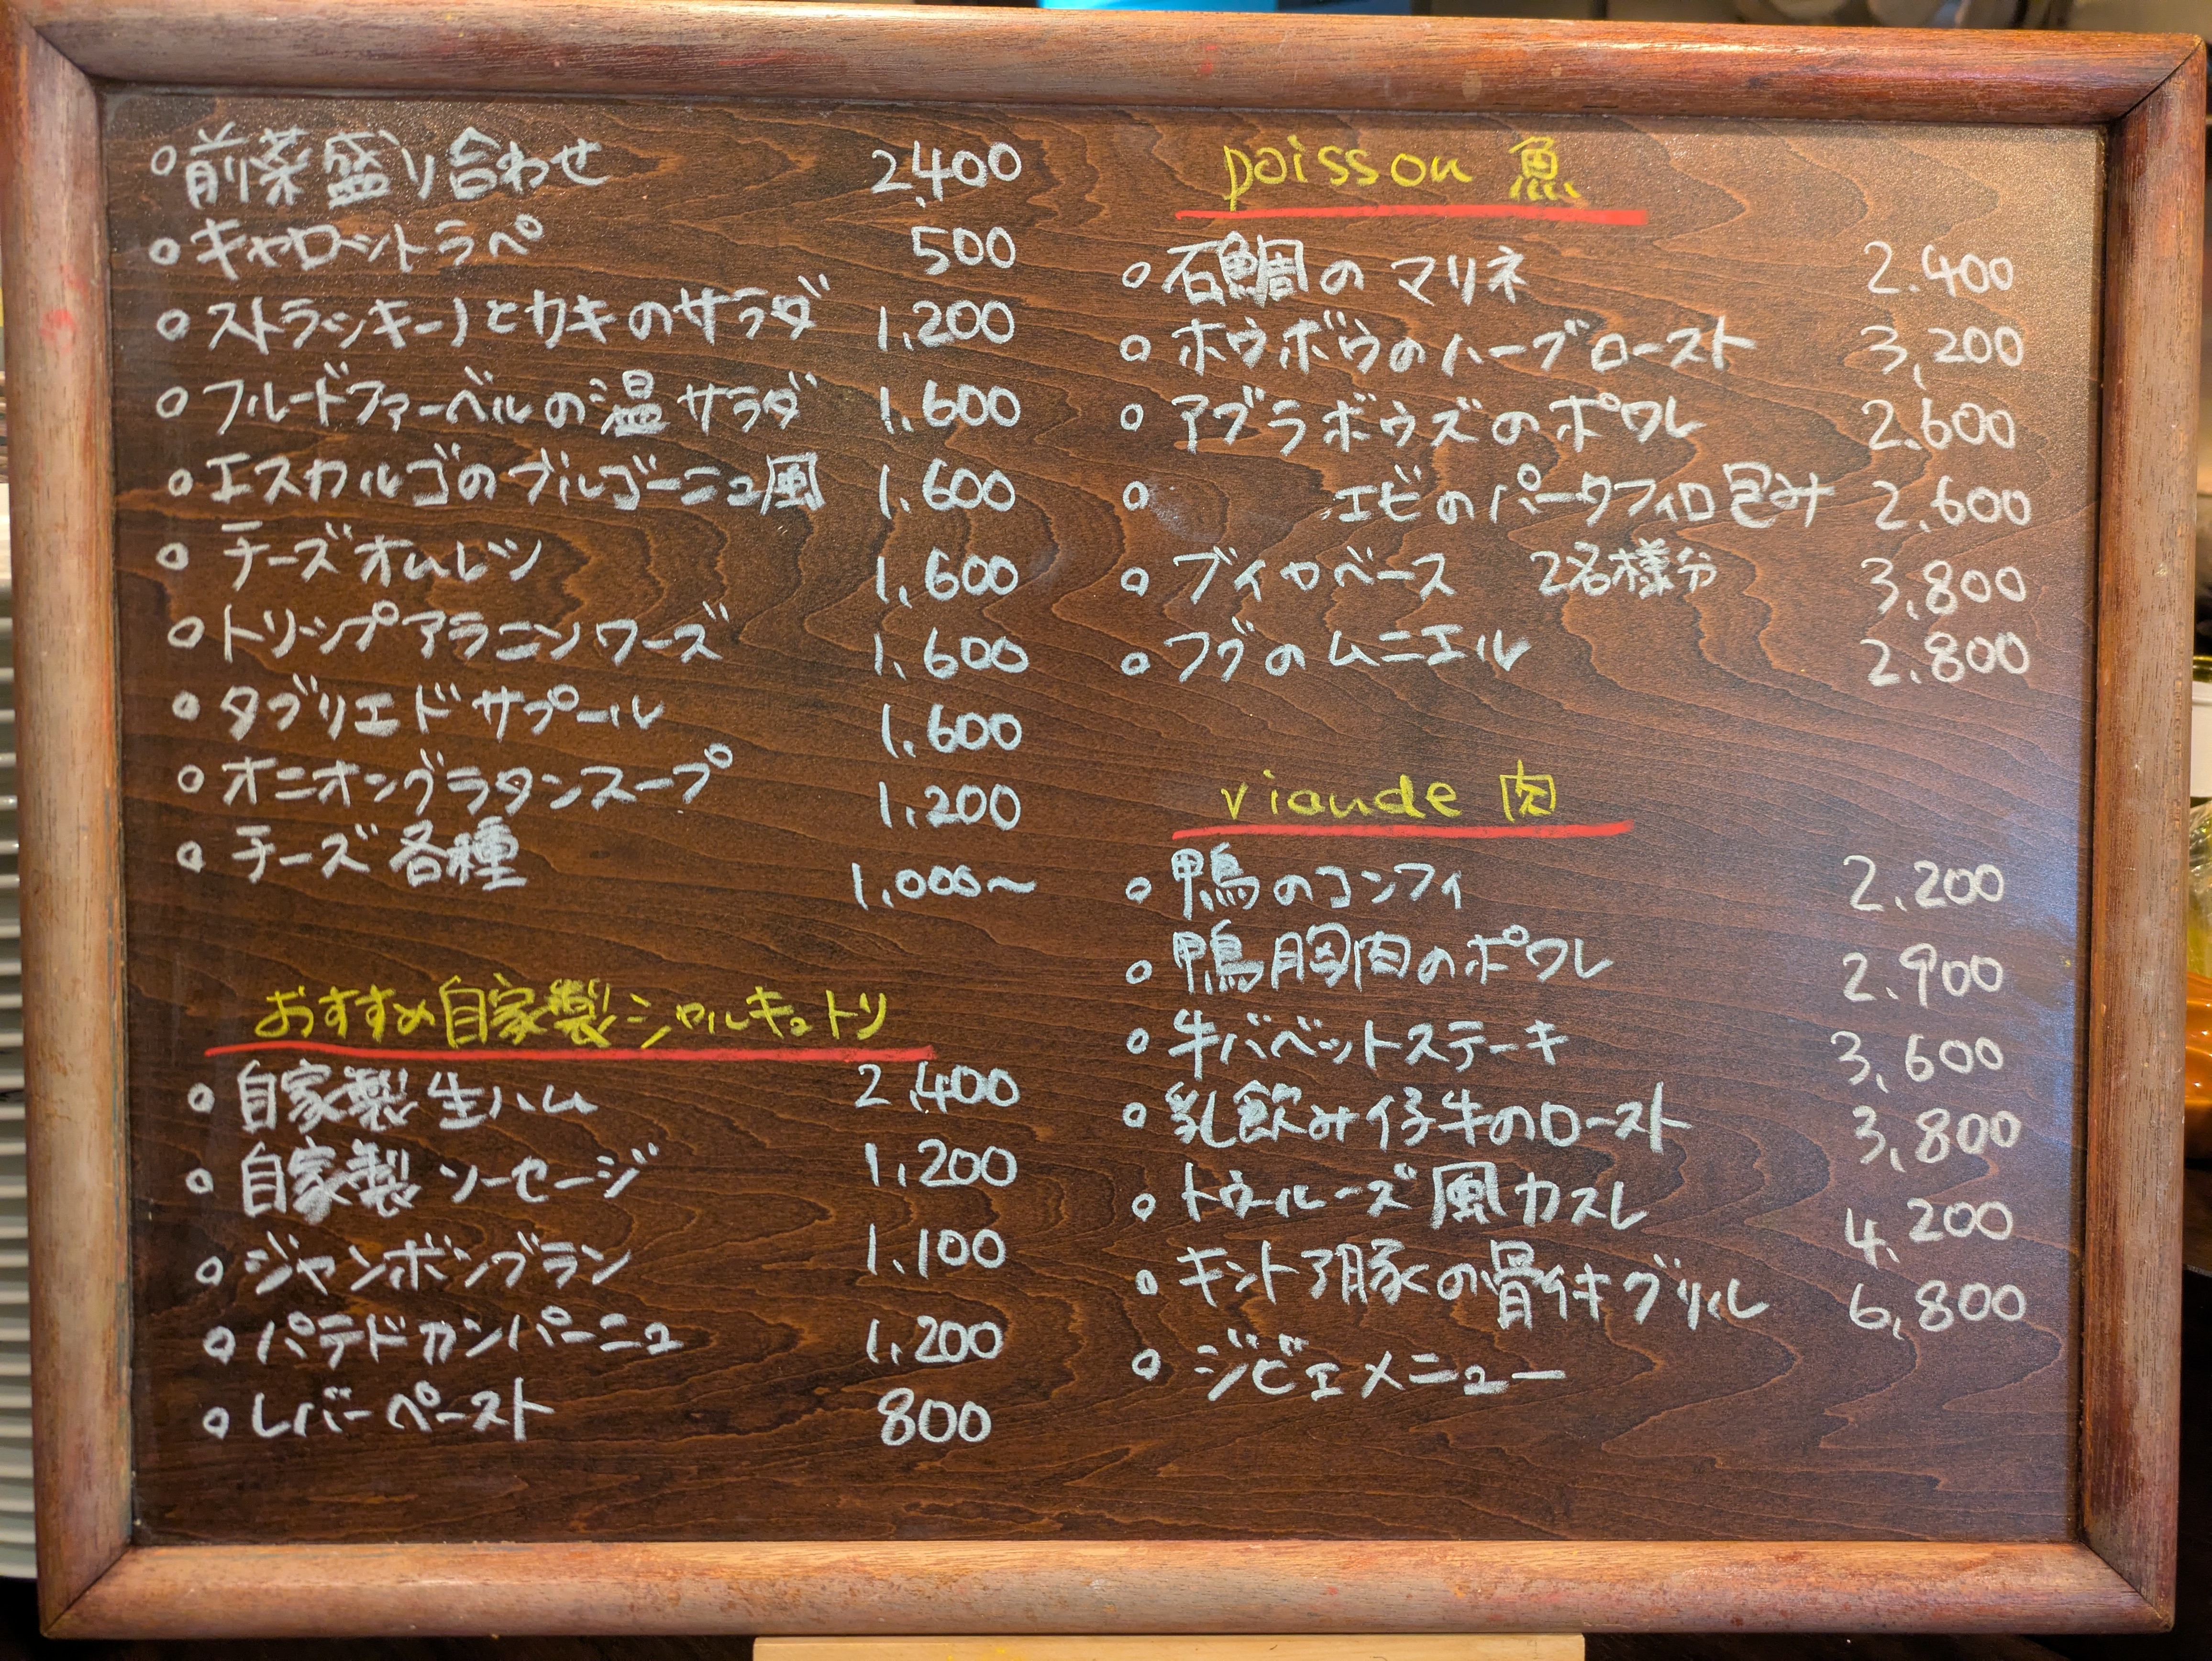 前菜盛り合わせ 2,400
キャロットラペ 500
ストラッキーノとカキのサラダ 1,200
フルードファーベルの温サラダ 1,600
エスカルゴのブルゴーニュ風 1,600
チーズオムレツ 1,600
トリップアラニソワーズ 1,600
タブリエドサプール 1,600
オニオングラタンスープ 1,200
チーズ各種 1,000〜
おすすめ自家製シャルキュトリ
自家製生ハム 2,400
自家製ソーセージ 1,200
ジャンボンブラン 1,100
パテドカンパーニュ 1,200
レバーペースト 800
poisson 魚
石鯛のマリネ 2.400
ホウボウのハーブロースト 3,200
アブラボウズのポワレ 2.600
エビのパータフィロ包み 2.600
ブイヤベース 2名様分 3.800
フグのムニエル 2.800
viande 肉
鴨のコンフィ 2.200
鴨胸肉のポワレ 2.900
牛バベットステーキ 3,600
乳飲み仔牛のロースト 3,800
トゥールーズ風カスレ 4.200
キントア豚の骨付きグリル 6,800
ジビエメニュー